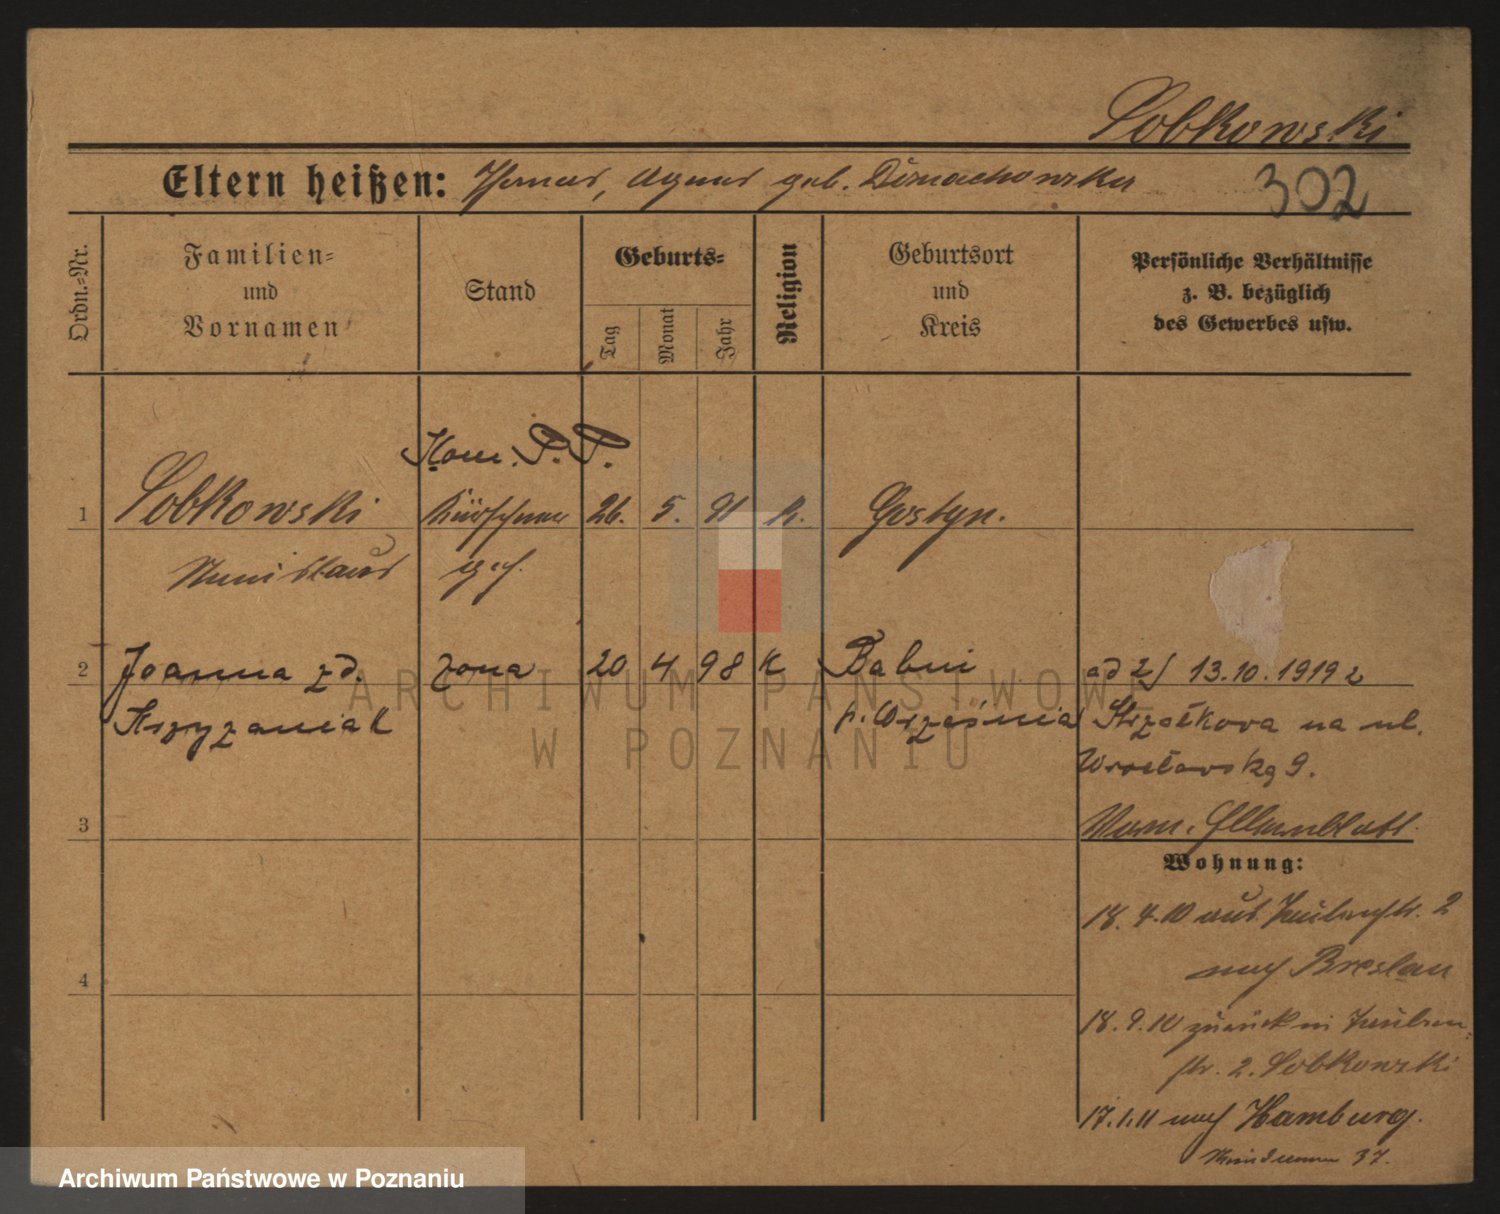 Sobkowski
Eltern heißen: Agnes geb. Dismachowska
302
Ordn.-Nr.
Familien-
und
Vornamen
Stand
Geburts-
Tag
Monat
Jahr
Religion
Geburtsort
und
Kreis
Persönliche Verhältnisse
z. B. bezüglich
des Gewerbes usw.
Kom. P. P.
1 Sobkowski Kürschner 26. 5. 91 k. Gostyn.
Stanislaus
2 Joanna zd. żona 20 4 98 k Babin ad 2/ 13.10.1919 z
Krzyżaniak p. Września Strzałkowa na ul.
Wrocławską 9.
3
Wohnung:
18.4.10 aus 2
nach Breslau
18.9.10 zurück
str. 2. Sobkowski
4
17.1.11 nach Hamburg.
37.
ARCHIWUM PAŃSTWOWE
W POZNANIU
Archiwum Państwowe w Poznaniu